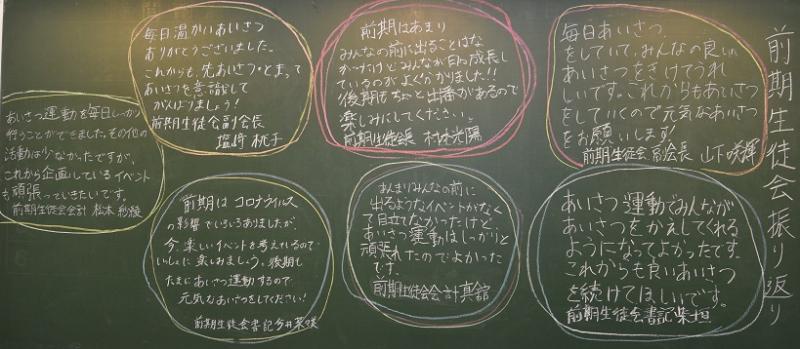 前期生徒会振り返り
毎日あいさつ
をしていて、みんなの良い
あいさつをきけてうれ
しいです。これからもあいさつ
をしていくので元気なあいさつ
をお願いします!
前期生徒会副会長 山下
前期はあまり
みんなの前に出ることはな
かったけどみんなが日々成長し
ているのがよくわかりました!!
後期もちょっと出番があるので
楽しみにしてください。
前期生徒会長
毎日温かいあいさつ
ありがとうございました。
これからも、先あいさつ・とまって
あいさつを意識して
がんばりましょう!
前期生徒会副会長
塩崎 桃子
あいさつ運動を毎日しっかり
行うことができました。その他の
活動は少なかったですが、
これから企画しているイベント
も頑張っていきたいです。
前期生徒会会計 松本
あいさつ運動でみんなが
あいさつをかえしてくれる
ようになってよかったです。
これからも良いあいさつ
を続けてほしいです。
前期生徒会書記 柴垣
あんまりみんなの前に
出るようなイベントがなく
て目立てなかったけど、
あいさつ運動はしっかりと
頑張れたのでよかった
です。
前期生徒会会計 真舘
前期はコロナウイルス
の影響でいろいろありましたが、
今、楽しいイベントを考えているので
いっしょに楽しみましょう。後期も
たまにあいさつ運動するので
元気なあいさつをしてください!
前期生徒会書記 今井